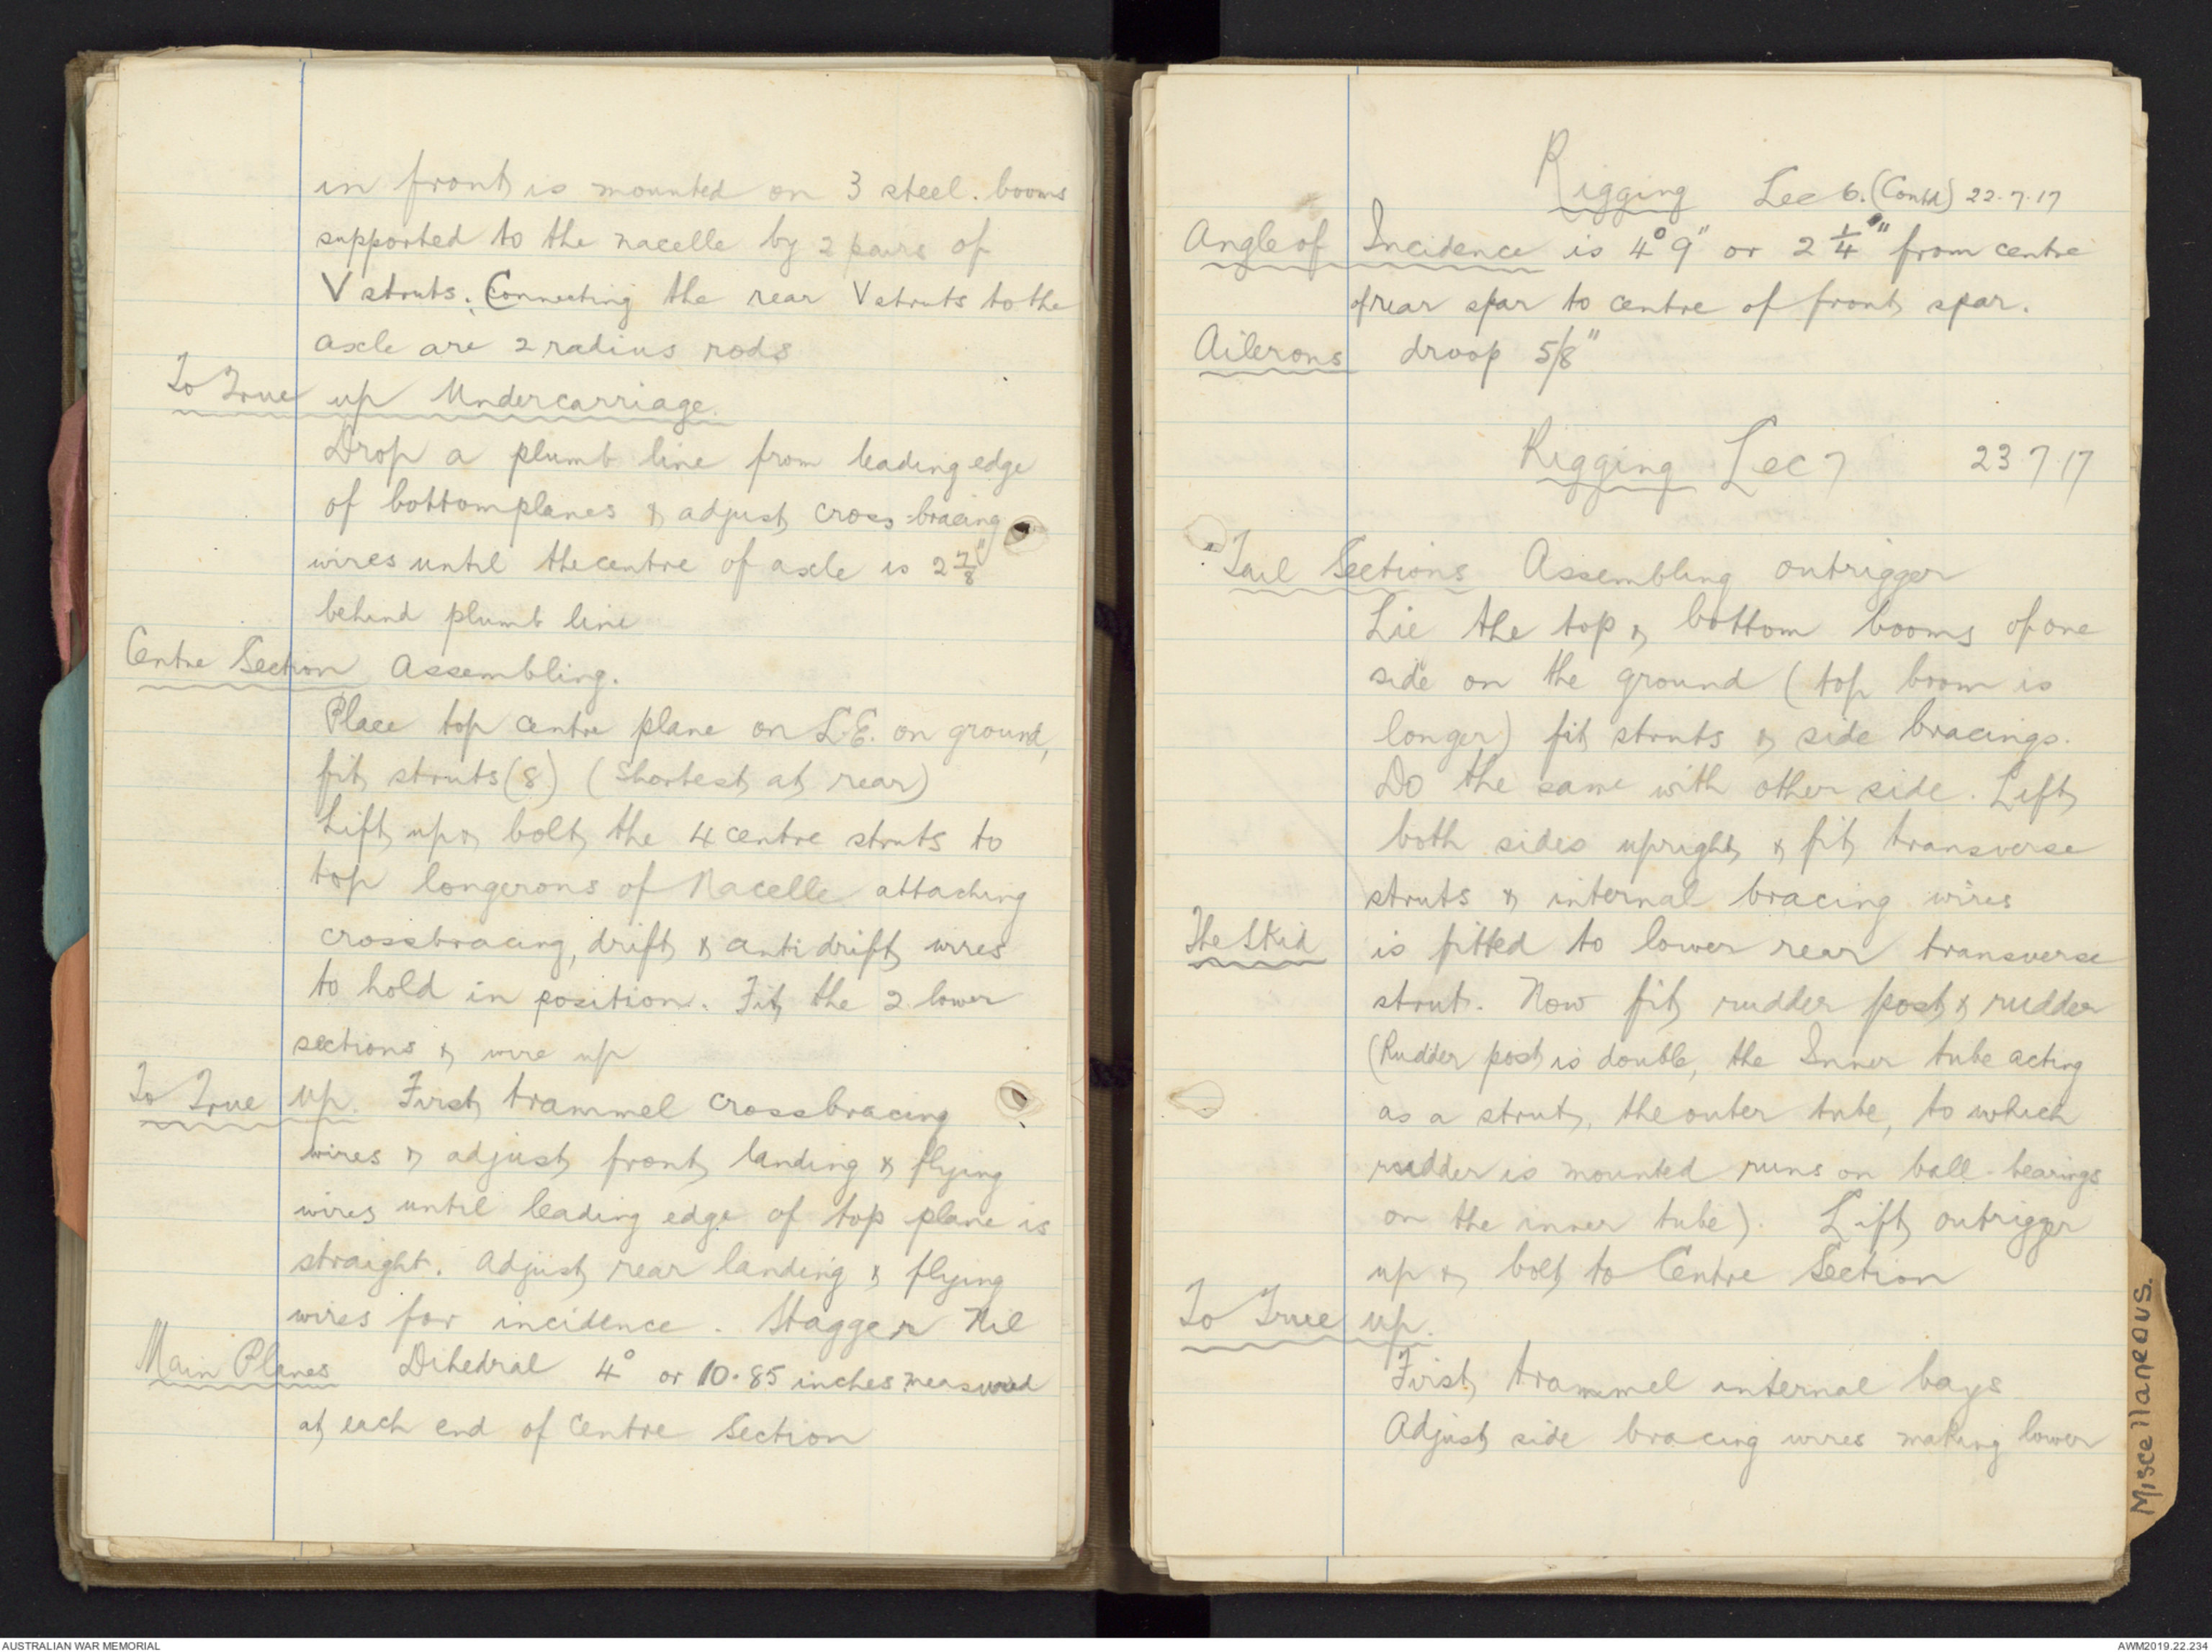 in front is mounted on 3 steel. booms
supported to the nacelle by 2 pairs of
V struts. Connecting the rear V struts to the
axle are 2 radius rods
To True up Undercarriage.
Drop a plumb line from leading edge
of bottom planes & adjust cross-bracing
wires until the centre of axle is 2 7/8"
behind plumb line
Centre Section Assembling.
Place top centre plane on L.E. on ground,
fit struts (8) (Shortest at rear)
Lift up & bolt the 4 centre struts to
top longerons of Nacelle attaching
crossbracing, drift & anti drift wires
to hold in position. Fit the 2 lower
sections & wire up
To True up. First trammel crossbracing
wires & adjust front landing & flying
wires until leading edge of top plane is
straight. Adjust rear landing & flying
wires for incidence. Stagger Nil
Main Planes Dihedral 4° or 10.85 inches measured
at each end of Centre Section
Rigging Lec 6. (Contd) 22.7.17
Angle of Incidence is 4° 9" or 2 1/4" from centre
of rear spar to centre of front spar.
Ailerons droop 5/8"
Rigging Lec 7 23 7 17
Tail Sections Assembling outrigger
Lie the top & bottom booms of one
side on the ground (top boom is
longer) fit struts & side bracings.
Do the same with other side. Lift
both sides upright & fit transverse
struts & internal bracing wires
The Skid is fitted to lower rear transverse
strut. Now fit rudder post & rudder
(Rudder post is double, the Inner tube acting
as a strut, the outer tube, to which
rudder is mounted runs on ball-bearings
on the inner tube). Lift outrigger
up & bolt to Centre Section
To True up.
First trammel internal bays
Adjust side bracing wires making lower
Miscellaneous.
AUSTRALIAN WAR MEMORIAL
AWM2019.22.234